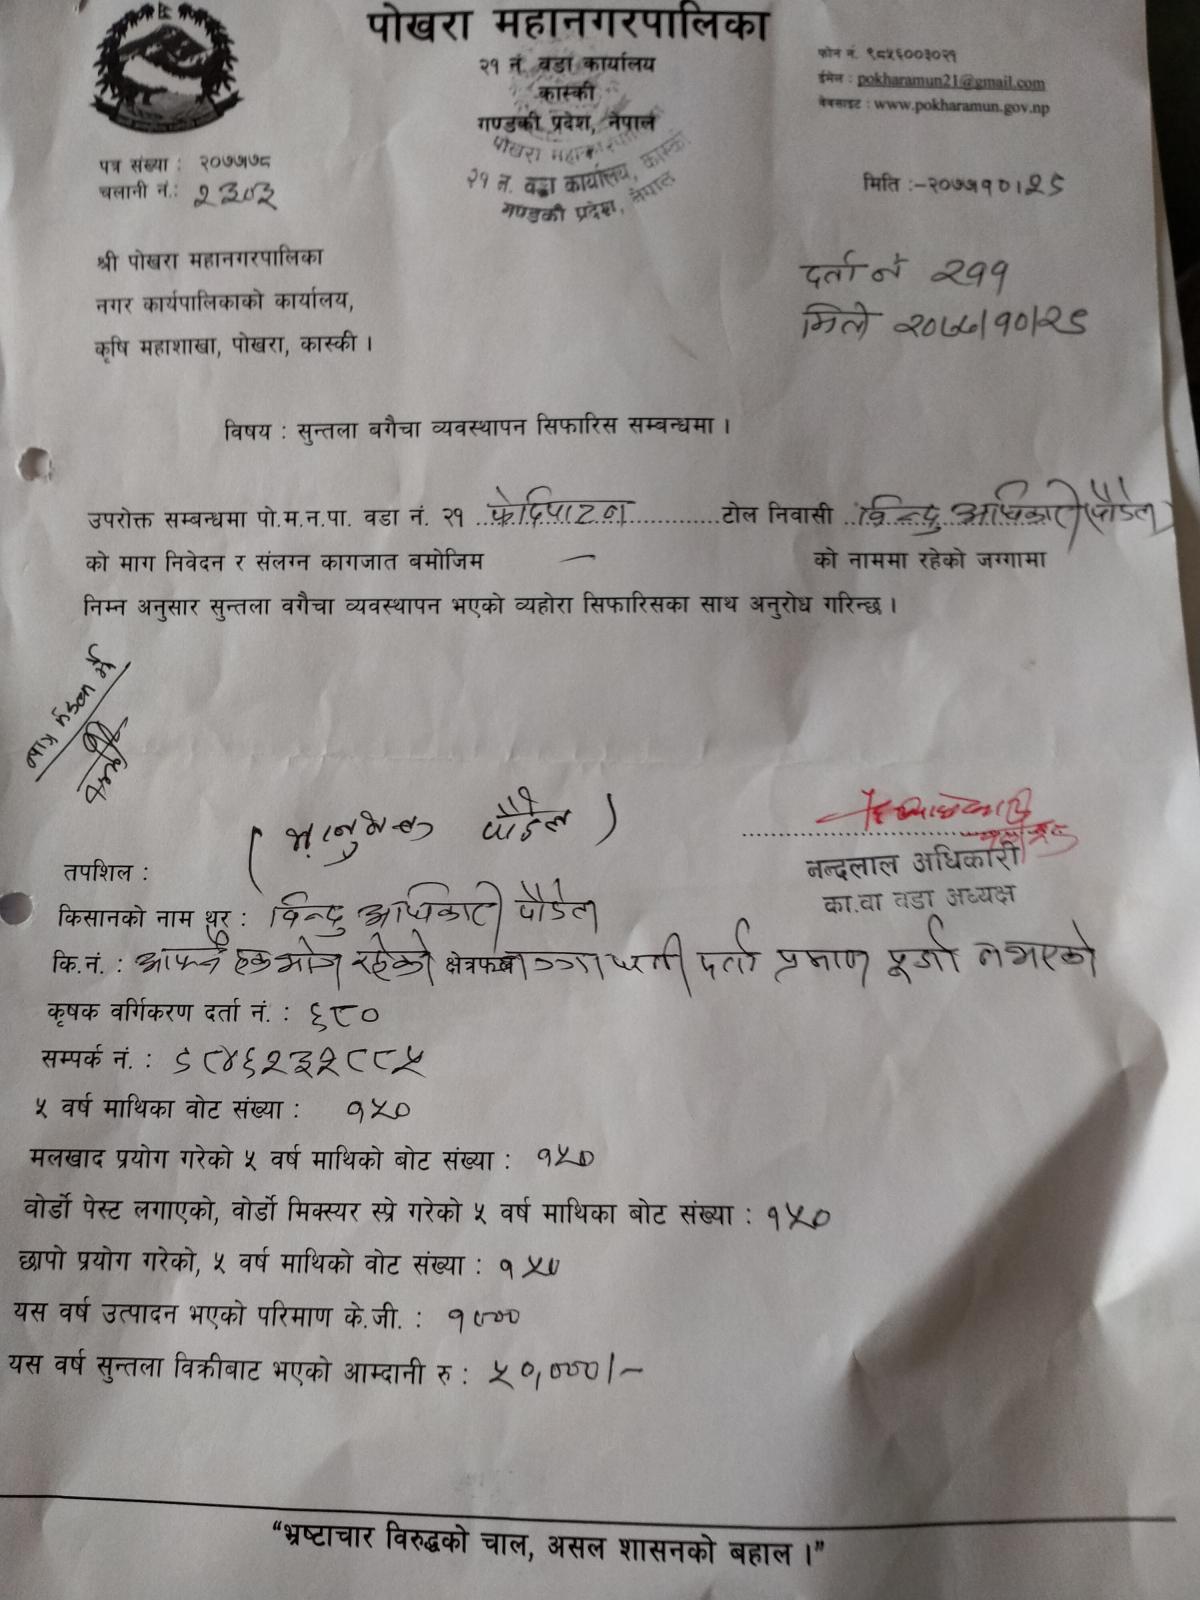 पोखरा महानगरपालिका
२१ नं. वडा कार्यालय
कास्की
गण्डकी प्रदेश, नेपाल
फोन नं. ९८५६००३०२१
ईमेल : pokharamun21@gmail.com
वेबसाइट : www.pokharamun.gov.np
पोखरा महानगरपालिका
२१ नं. वडा कार्यालय, कास्की
गण्डकी प्रदेश, नेपाल
पत्र संख्या : २०७७।७८
चलानी नं.: २३०३
मिति :-२०७७।१०।२९
श्री पोखरा महानगरपालिका
नगर कार्यपालिकाको कार्यालय,
कृषि महाशाखा, पोखरा, कास्की ।
दर्ता नं २११
मिति २०७७/१०/२९
विषय : सुन्तला बगैचा व्यवस्थापन सिफारिस सम्बन्धमा ।
उपरोक्त सम्बन्धमा पो.म.न.पा. वडा नं. २१ फेदिपाटन टोल निवासी विन्दु अधिकारी (पौडेल)
को माग निवेदन र संलग्न कागजात बमोजिम — को नाममा रहेको जग्गामा
निम्न अनुसार सुन्तला वगैचा व्यवस्थापन भएको व्यहोरा सिफारिसका साथ अनुरोध गरिन्छ ।
(भानुभक्त पौडेल)
नन्दलाल अधिकारी
का.वा वडा अध्यक्ष
तपशिल :
किसानको नाम थर : विन्दु अधिकारी पौडेल
कि.नं. : आफ्नै हकभोग रहेको क्षेत्रफल जग्गा धनी दर्ता प्रमाण पूर्जा नभएको
कृषक वर्गिकरण दर्ता नं. : ६८०
सम्पर्क नं. : ९८४६२३२८८५
५ वर्ष माथिका वोट संख्या : १५०
मलखाद प्रयोग गरेको ५ वर्ष माथिको बोट संख्या : १५०
वोर्डो पेस्ट लगाएको, वोर्डो मिक्स्यर स्प्रे गरेको ५ वर्ष माथिका बोट संख्या : १५०
छापो प्रयोग गरेको, ५ वर्ष माथिको वोट संख्या : १५०
यस वर्ष उत्पादन भएको परिमाण के.जी. : १०००
यस वर्ष सुन्तला विक्रीबाट भएको आम्दानी रु : ५०,०००/-
“भ्रष्टाचार विरुद्धको चाल, असल शासनको बहाल ।”